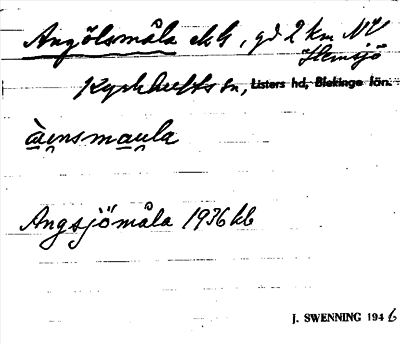 Angölsmåla ek G, gd 2 km NV
Hemsjö
Kyrkhults sn, Listers hd, Blekinge län.
àensmaula
Angsjömåla 1936 kb
J. SWENNING 1946